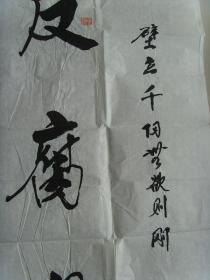 壁立千仞無欲则刚
反腐